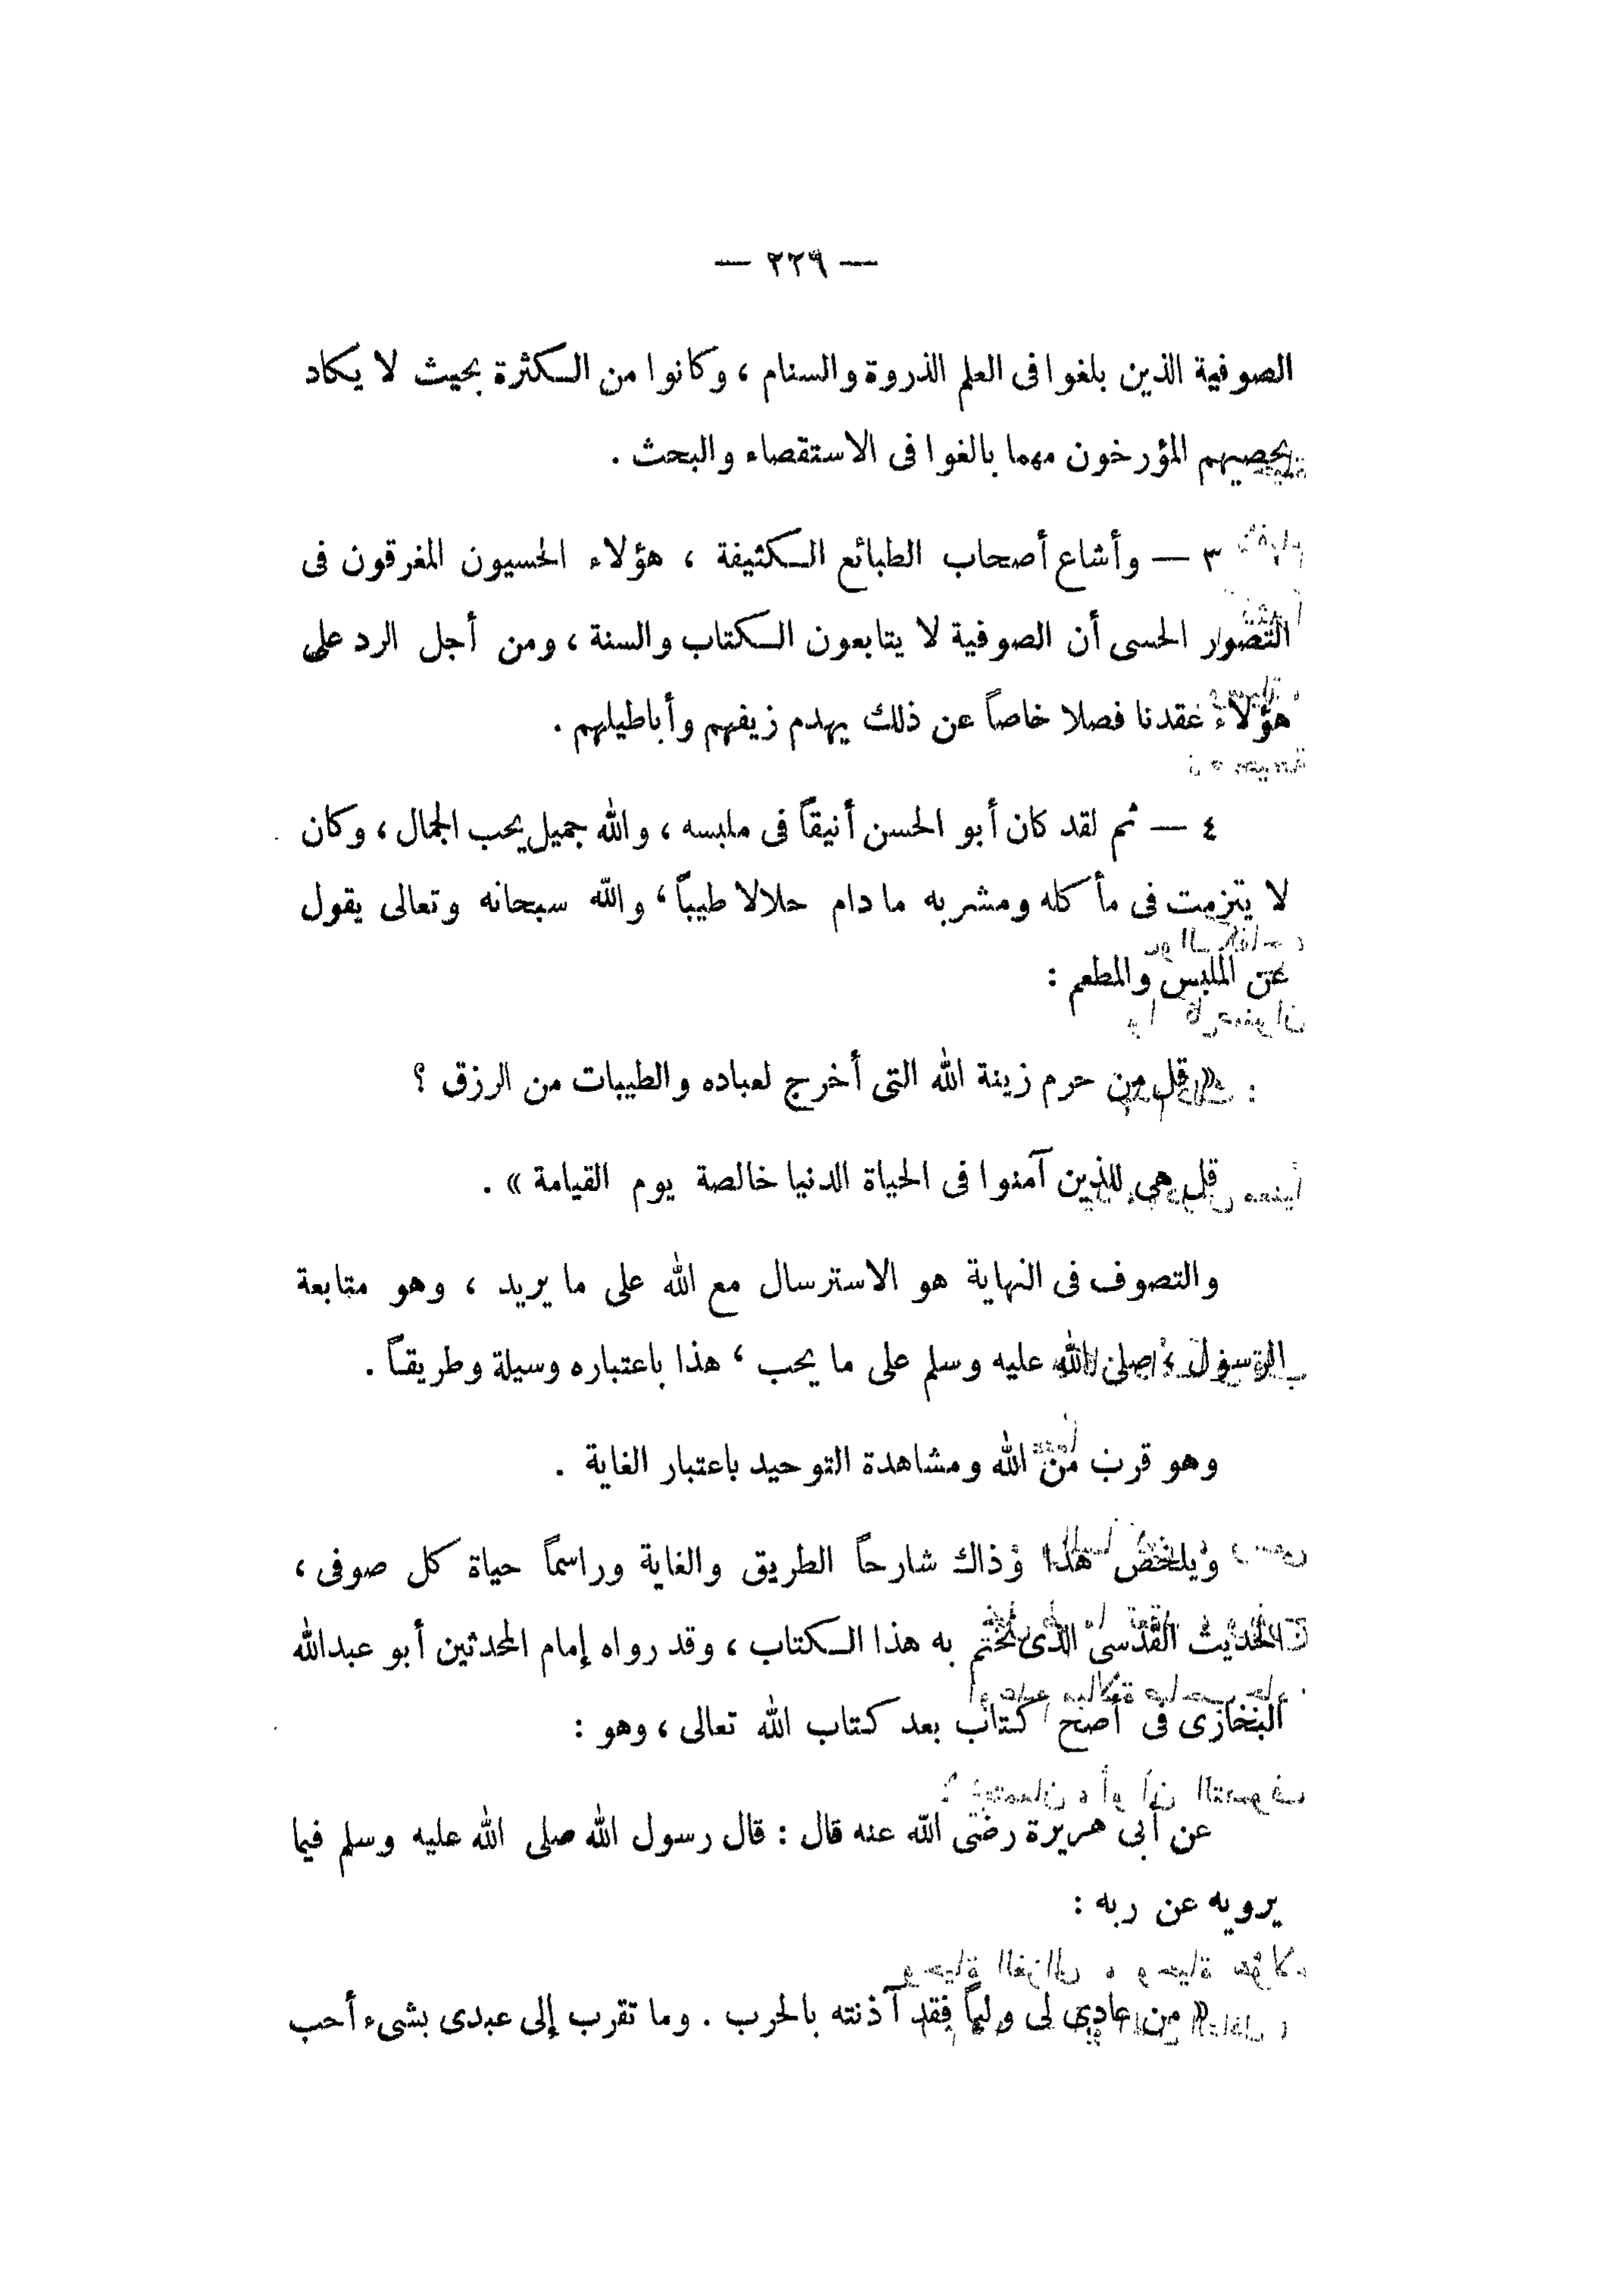 — ٢٢٩ —
الصوفية الذين بلغوا فى العلم الذروة والسنام ، وكانوا من الكثرة بحيث لا يكاد
يحصيهم المؤرخون مهما بالغوا فى الاستقصاء والبحث .
٣ — وأشاع أصحاب الطبائع الكثيفة ، هؤلاء الحسيون المغرقون فى
التصور الحسى أن الصوفية لا يتابعون الكتاب والسنة ، ومن أجل الرد على
هؤلاء عقدنا فصلا خاصاً عن ذلك يهدم زيفهم وأباطيلهم .
٤ — ثم لقد كان أبو الحسن أنيقاً فى ملبسه ، والله جميل يحب الجمال ، وكان
لا يتزمت فى مأكله ومشربه ما دام حلالا طيباً ، والله سبحانه وتعالى يقول
عن الملبس والمطعم :
« قل من حرم زينة الله التى أخرج لعباده والطيبات من الرزق ؟
قل هى للذين آمنوا فى الحياة الدنيا خالصة يوم القيامة » .
والتصوف فى النهاية هو الاسترسال مع الله على ما يريد ، وهو متابعة
الرسول ، صلى الله عليه وسلم على ما يحب ، هذا باعتباره وسيلة وطريقاً .
وهو قرب من الله ومشاهدة التوحيد باعتبار الغاية .
ويلخص هذا وذاك شارحاً الطريق والغاية وراسماً حياة كل صوفى ،
الحديث القدسى الذى نختم به هذا الكتاب ، وقد رواه إمام المحدثين أبو عبدالله
البخارى فى أصح كتاب بعد كتاب الله تعالى ، وهو :
عن أبى هريرة رضى الله عنه قال : قال رسول الله صلى الله عليه وسلم فيما
يرويه عن ربه :
« من عادى لى ولياً فقد آذنته بالحرب . وما تقرب إلى عبدى بشىء أحب